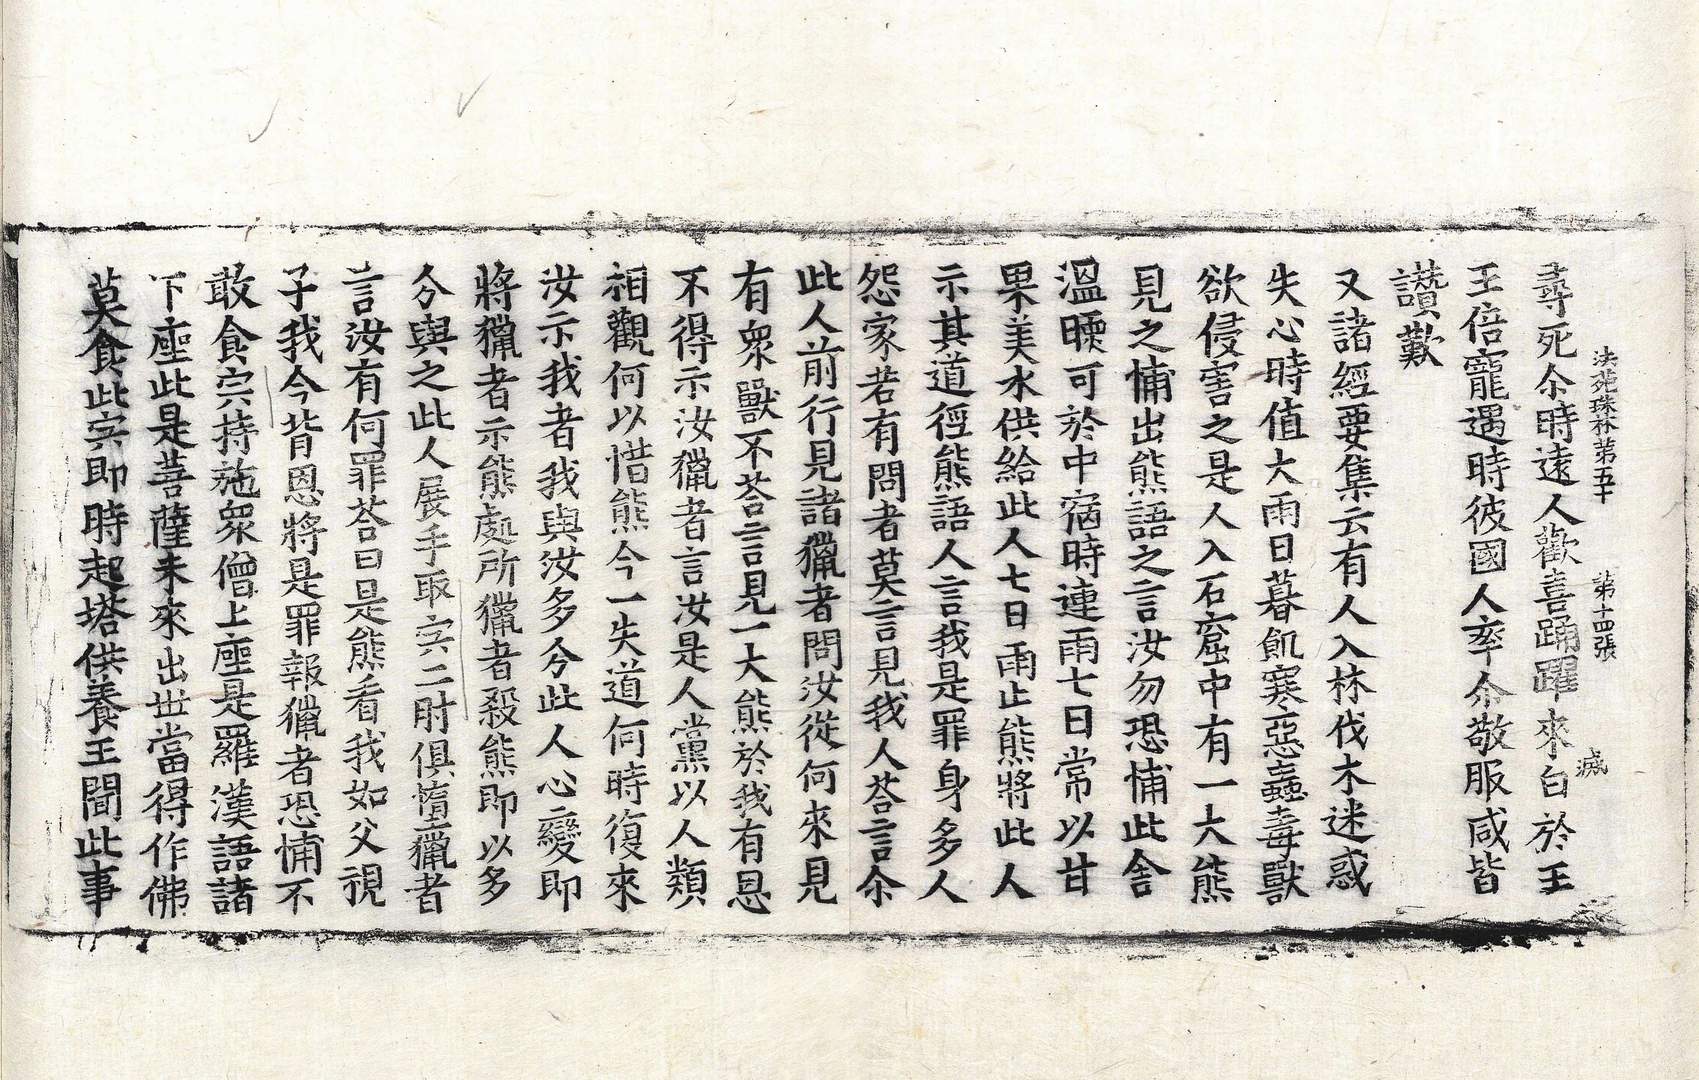 法苑珠林第五十 第十四張 滅
尋死尒時遠人歡喜踊躍來白於王
王倍寵遇時彼國人率尒敬服咸皆
讚歎
又諸經要集云有人入林伐木迷惑
失心時值大雨日暮飢寒惡蟲毒獸
欲侵害之是人入石窟中有一大熊
見之怖出熊語之言汝勿恐怖此舍
溫暖可於中宿時連雨七日常以甘
果美水供給此人七日雨止熊將此人
示其道徑熊語人言我是罪身多人
怨家若有問者莫言見我人荅言尒
此人前行見諸獵者問汝從何來見
有衆獸不荅言見一大熊於我有恩
不得示汝獵者言汝是人黨以人類
相觀何以惜熊今一失道何時復來
汝示我者我與汝多分此人心變即
將獵者示熊處所獵者殺熊即以多
分與之此人展手取宍二肘俱墮獵者
言汝有何罪荅曰是熊看我如父視
子我今背恩將是罪報獵者恐怖不
敢食宍持施衆僧上座是羅漢語諸
下座此是菩薩未來出世當得作佛
莫食此宍即時起塔供養王聞此事